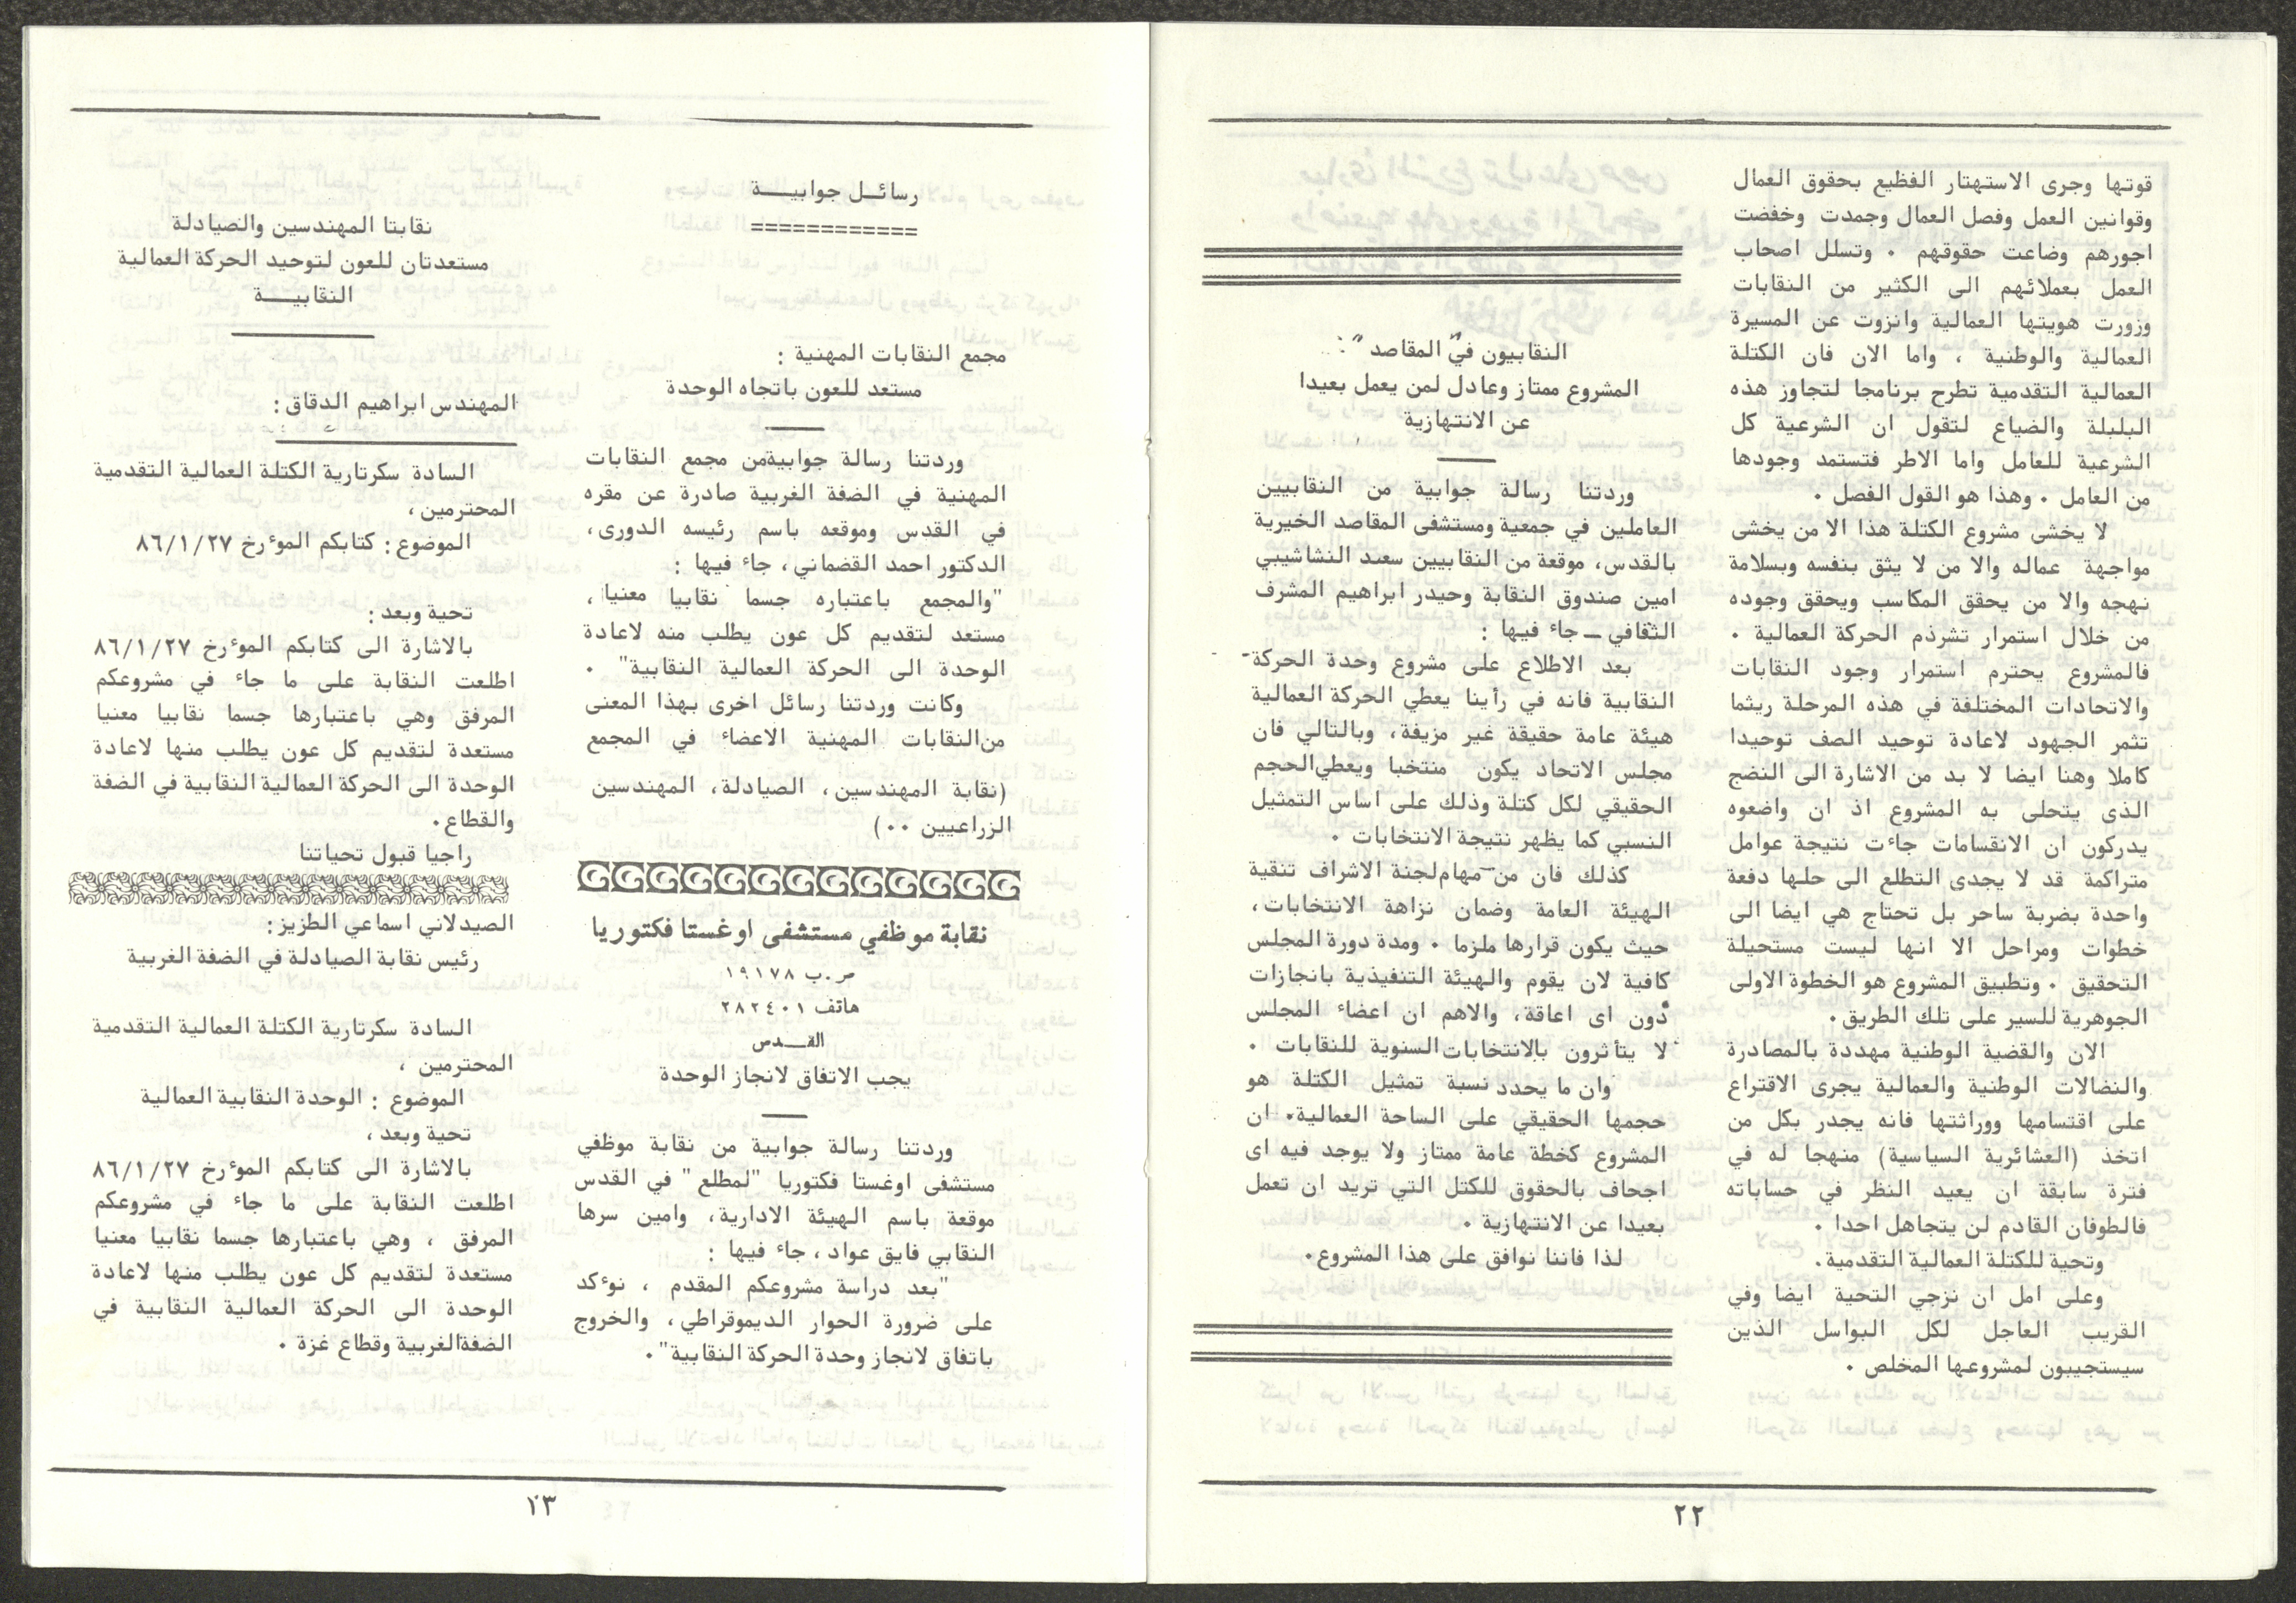 قوتها وجرى الاستهتار الفظيع بحقوق العمال
وقوانين العمل وفصل العمال وجمدت وخفضت
اجورهم وضاعت حقوقهم . وتسلل اصحاب
العمل بعملائهم الى الكثير من النقابات
وزورت هويتها العمالية وانزوت عن المسيرة
العمالية والوطنية ، واما الان فان الكتلة
العمالية التقدمية تطرح برنامجا لتجاوز هذه
البلبلة والضياع لتقول ان الشرعية كل
الشرعية للعامل واما الاطر فتستمد وجودها
من العامل . وهذا هو القول الفصل .
لا يخشى مشروع الكتلة هذا الا من يخشى
مواجهة عماله والا من لا يثق بنفسه وبسلامة
نهجه والا من يحقق المكاسب ويحقق وجوده
من خلال استمرار تشرذم الحركة العمالية .
فالمشروع يحترم استمرار وجود النقابات
والاتحادات المختلفة في هذه المرحلة ريثما
تثمر الجهود لاعادة توحيد الصف توحيدا
كاملا وهنا ايضا لا بد من الاشارة الى النضج
الذى يتحلى به المشروع اذ ان واضعوه
يدركون ان الانقسامات جاءت نتيجة عوامل
متراكمة قد لا يجدى التطلع الى حلها دفعة
واحدة بضربة ساحر بل تحتاج هي ايضا الى
خطوات ومراحل الا انها ليست مستحيلة
التحقيق . وتطبيق المشروع هو الخطوة الاولى
الجوهرية للسير على تلك الطريق.
الان والقضية الوطنية مهددة بالمصادرة
والنضالات الوطنية والعمالية يجرى الاقتراع
على اقتسامها ووراثتها فانه يجدر بكل من
اتخذ (العشائرية السياسية) منهجا له في
فترة سابقة ان يعيد النظر في حساباته
فالطوفان القادم لن يتجاهل احدا .
وتحية للكتلة العمالية التقدمية.
وعلى امل ان نزجي التحية ايضا وفي
القريب العاجل لكل البواسل الذين
سيستجيبون لمشروعها المخلص .
النقابيون في "المقاصد" :
المشروع ممتاز وعادل لمن يعمل بعيدا
عن الانتهازية
وردتنا رسالة جوابية من النقابيين
العاملين في جمعية ومستشفى المقاصد الخيرية
بالقدس، موقعة من النقابيين سعىد النشاشيبي
امين صندوق النقابة وحيدر ابراهيم المشرف
الثقافي ــ جاء فيها :
بعد الاطلاع على مشروع وحدة الحركة
النقابية فانه في رأينا يعطي الحركة العمالية
هيئة عامة حقيقة غير مزيفة، وبالتالي فان
مجلس الاتحاد يكون منتخبا ويعطي الحجم
الحقيقي لكل كتلة وذلك على اساس التمثيل
النسبي كما يظهر نتيجة الانتخابات .
كذلك فان من مهام لجنة الاشراف تنقية
الهيئة العامة وضمان نزاهة الانتخابات،
حيث يكون قرارها ملزما . ومدة دورة المجلس
كافية لان يقوم والهيئة التنفيذية بانجازات
دون اى اعاقة، والاهم ان اعضاء المجلس
لا يتأثرون بالانتخابات السنوية للنقابات .
وان ما يحدد نسبة تمثيل الكتلة هو
حجمها الحقيقي على الساحة العمالية. ان
المشروع كخطة عامة ممتاز ولا يوجد فيه اى
اجحاف بالحقوق للكتل التي تريد ان تعمل
بعيدا عن الانتهازية .
لذا فاننا نوافق على هذا المشروع.
٢٢
رسائل جوابيــــة
============
مجمع النقابات المهنية :
مستعد للعون باتجاه الوحدة
وردتنا رسالة جوابية من مجمع النقابات
المهنية في الضفة الغربية صادرة عن مقره
في القدس وموقعه باسم رئيسه الدورى،
الدكتور احمد القضماني، جاء فيها :
"والمجمع باعتباره جسما نقابيا معنيا،
مستعد لتقديم كل عون يطلب منه لاعادة
الوحدة الى الحركة العمالية النقابية" .
وكانت وردتنا رسائل اخرى بهذا المعنى
من النقابات المهنية الاعضاء في المجمع
(نقابة المهندسين، الصيادلة، المهندسين
الزراعيين ..)
نقابة موظفي مستشفى اوغستا فكتوريا
ص.ب ١٩١٧٨
هاتف ٢٨٢٤٠١
القـــدس
يجب الاتفاق لانجاز الوحدة
وردتنا رسالة جوابية من نقابة موظفي
مستشفى اوغستا فكتوريا "لمطلع" في القدس
موقعة باسم الهيئة الادارية، وامين سرها
النقابي فايق عواد، جاء فيها :
"بعد دراسة مشروعكم المقدم ، نوءكد
على ضرورة الحوار الديموقراطي، والخروج
باتفاق لانجاز وحدة الحركة النقابية".
نقابتا المهندسين والصيادلة
مستعدتان للعون لتوحيد الحركة العمالية
النقابيــــة
المهندس ابراهيم الدقاق:
السادة سكرتارية الكتلة العمالية التقدمية
المحترمين،
الموضوع: كتابكم الموءرخ ٨٦/١/٢٧
تحية وبعد:
بالاشارة الى كتابكم الموءرخ ٨٦/١/٢٧
اطلعت النقابة على ما جاء في مشروعكم
المرفق وهي باعتبارها جسما نقابيا معنيا
مستعدة لتقديم كل عون يطلب منها لاعادة
الوحدة الى الحركة العمالية النقابية في الضفة
والقطاع.
راجيا قبول تحياتنا
الصيدلاني اسماعي الطزيز:
رئيس نقابة الصيادلة في الضفة الغربية
السادة سكرتارية الكتلة العمالية التقدمية
المحترمين ،
الموضوع : الوحدة النقابية العمالية
تحية وبعد،
بالاشارة الى كتابكم الموءرخ ٨٦/١/٢٧
اطلعت النقابة على ما جاء في مشروعكم
المرفق ، وهي باعتبارها جسما نقابيا معنيا
مستعدة لتقديم كل عون يطلب منها لاعادة
الوحدة الى الحركة العمالية النقابية في
الضفة الغربية وقطاع غزة .
١٣